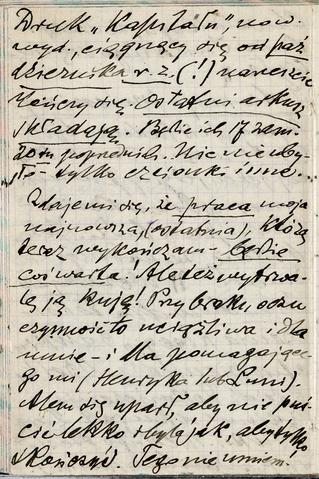 Druk „Kapitału", now.
wyd., ciągnący się od paź
dziernika r. z. (!) nareszcie
kończy się. Ostatni arkusz
składają. Będzie ich 17 zam.
20 poprzednich. Nic nie uby-
ło - tylko czcionki inne.
Zdaje mi się, że praca moja
najnowsza, (ostatnia), którą
teraz wykończam - będzie
coś warta! Ale też wytrwa-
le ją kuję! Przy braku oczu
czynność to uciążliwa i dla
mnie - i dla pomagające-
go mi (Henryka lub Luni).
Alem się uparł, aby nie puś-
cić lekko byle jak, aby tylko
skończyć. Tego nie umiem.